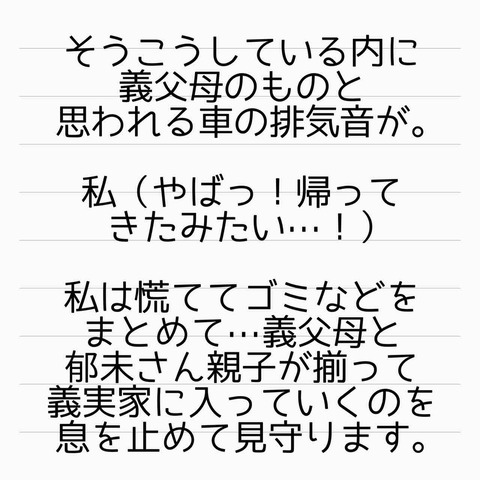 そうこうしている内に
義父母のものと
思われる車の排気音が。
私（やばっ！帰って
きたみたい…！）
私は慌ててゴミなどを
まとめて…義父母と
郁未さん親子が揃って
義実家に入っていくのを
息を止めて見守ります。